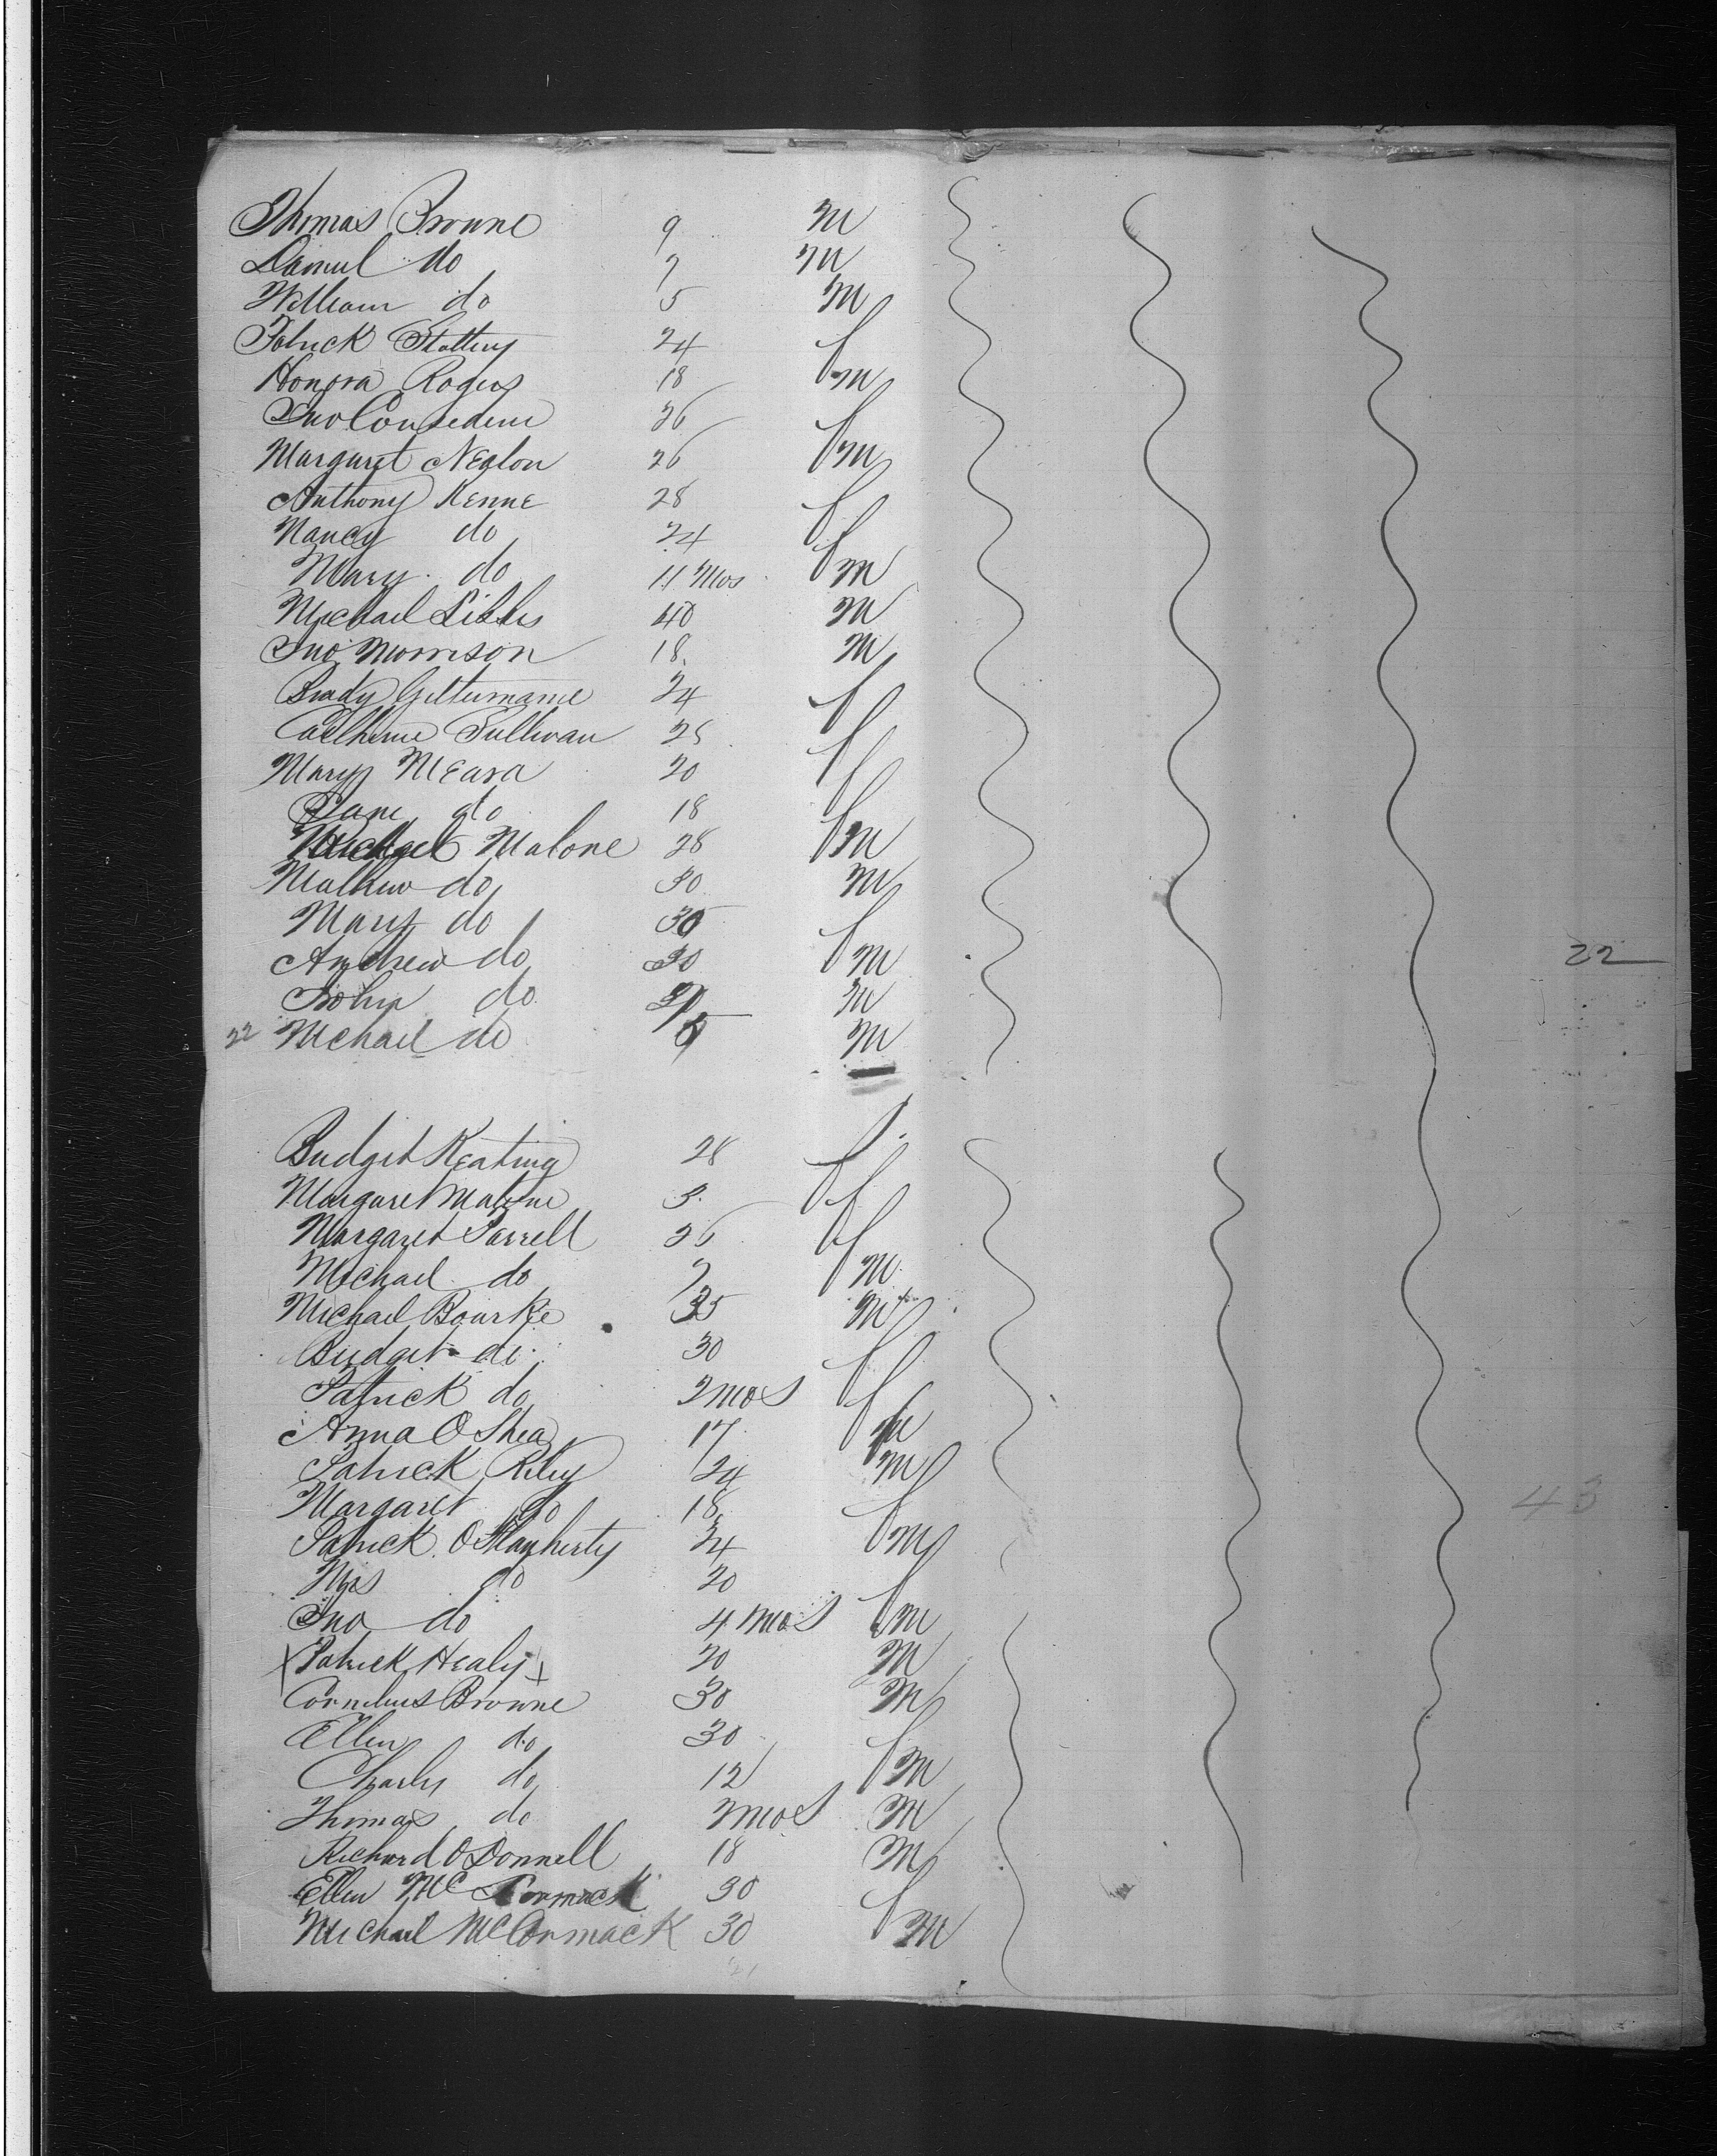 Thomas Browne 9 M
Daniel do 7 M
William do 5 M
Patrick Slattery 24
Honora Rogers 18 f M
Jno Considene 26
Margaret Neylon 26 f M
Anthony Kenne 28
Nancy do 24 f
Mary do 11 Mos f M
Michael 40 M
Jno Morrison 18 M
Bridy 24 f
Catherine Sullivan 25 f
Mary MEara 20 f
Jane do 18
Michael Malone 28 f M
Mathew do 30 M
Mary do 35
Andrew do 30 f M
22
John do M
22 Michael do M
Bridget Keating 28 f
Margaret Malone 3 f
Margaret Farrell 26 f
Michael do 7 M
Michael Bourke 35 M
Bridget do 30
Patrick do 2 mos f
Anna O Shea 17
Patrick Riley 24 M
Margaret do 18
43
Patrick O Flagherty 24 f M
Mrs do 20
Jno do 4 mos f M
X Patrick Healy X 20 M
Cornelius Browne 30 M
Ellen do 30
Charly do 12 f M
Thomas do 2 mos M
Richard O Donnell 18 M
Ellen Mc Cormack 30
Michael McCormack 30 f M
21